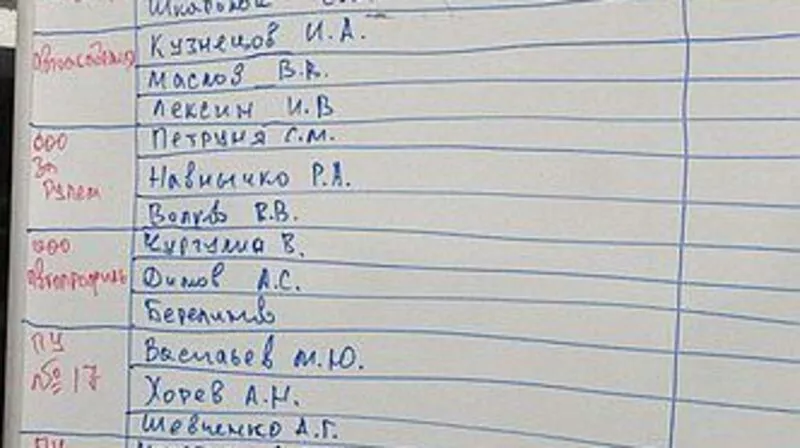 Кузнецов И.А.
Маслов В.В.
Лексин И.В
ООО
За
Рулем
Петруня С.М.
Навнычко Р.А.
Волков В.В.
ООО
Автопрофиль
Кургулиа В.
Филов А.С.
ПУ
№ 17
Васильев М.Ю.
Хорев А.Н.
Шевченко А.Г.
ПУ